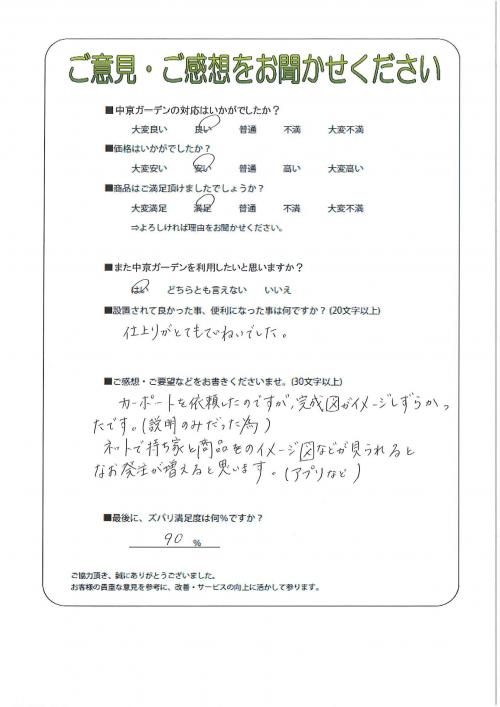 ご意見・ご感想をお聞かせください
■中京ガーデンの対応はいかがでしたか？
大変良い 良い 普通 不満 大変不満
■価格はいかがでしたか？
大変安い 安い 普通 高い 大変高い
■商品はご満足頂けましたでしょうか？
大変満足 満足 普通 不満 大変不満
⇒よろしければ理由をお聞かせください。
■また中京ガーデンを利用したいと思いますか？
はい どちらとも言えない いいえ
■設置されて良かった事、便利になった事は何ですか？(20文字以上)
仕上りがとてもていねいでした。
■ご感想・ご要望などをお書きくださいませ。(30文字以上)
カーポートを依頼したのですが、完成図がイメージしずらかっ
たです。(説明のみだった為)
ネットで持ち家と商品をのイメージ図などが見られると
なお発注が増えると思います。(アプリなど)
■最後に、ズバリ満足度は何％ですか？
90 ％
ご協力頂き、誠にありがとうございました。
お客様の貴重な意見を参考に、改善・サービスの向上に活かして参ります。